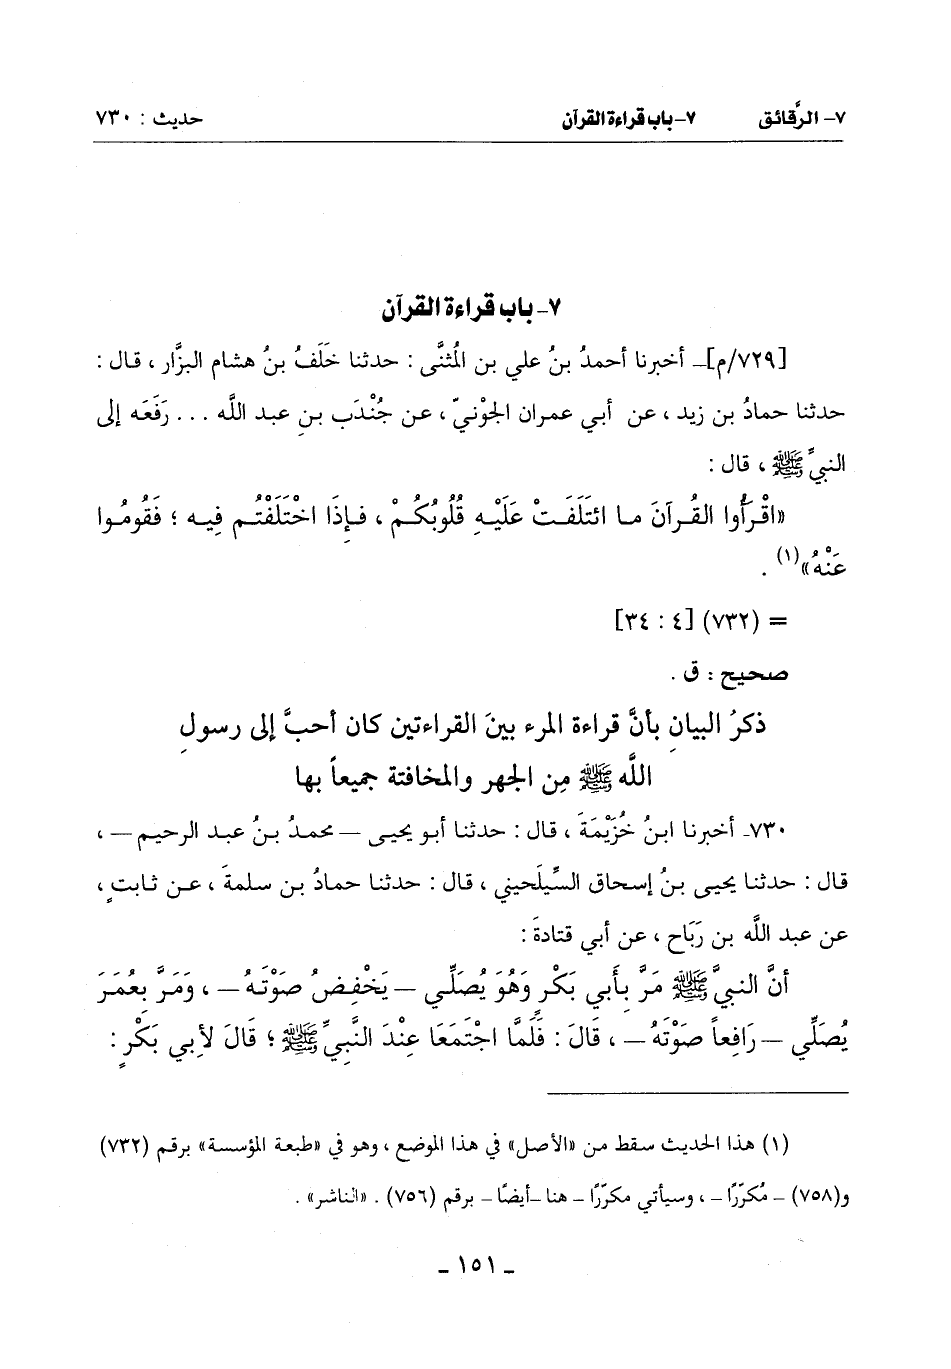 ٧- الرَّقائق ٧-باب قراءة القرآن حديث : ٧٣٠
٧- باب قراءة القرآن
[٧٢٩/م]ـ أخبرنا أحمدُ بنُ علي بن المُثنَّى : حدثنا خَلَفُ بنُ هشام البزَّار ، قال :
حدثنا حمادُ بن زيد ، عن أبي عمران الجوْنيّ ، عن جُنْدَب بنِ عبد اللَّه ... رَفَعَه إلى
النبيِّ ﷺ ، قال :
«اقْرَأُوا القُرآنَ ما ائتَلَفَتْ عَلَيْهِ قُلُوبُكُمْ ، فإِذَا اخْتَلَفْتُم فِيه ؛ فَقُومُوا
عَنْهُ»(١) .
= (٧٣٢) [٤ : ٣٤]
صحيح : ق .
ذكرُ البيانِ بأنَّ قراءة المرء بينَ القراءتين كان أحبَّ إلى رسولِ
اللَّه ﷺ مِن الجهر والمخافتة جميعاً بها
٧٣٠- أخبرنا ابنُ خُزَيْمَةَ ، قال : حدثنا أبو يحيى — محمدُ بنُ عبد الرحيم — ،
قال : حدثنا يحيى بنُ إسحاق السِّيلَحيني ، قال : حدثنا حمادُ بن سلمةَ ، عن ثابتٍ ،
عن عبد اللَّه بن رَبَاح ، عن أبي قتادةَ :
أنَّ النبيَّ ﷺ مَرَّ بِأَبي بَكْرٍ وَهُوَ يُصَلِّي — يَخْفِضُ صَوْتَهُ — ، وَمَرَّ بِعُمَرَ
يُصَلِّي — رَافِعاً صَوْتَهُ — ، قَالَ : فَلَمَّا اجْتَمَعَا عِنْدَ النَّبِيِّ ﷺ ؛ قَالَ لأَبِي بَكْرٍ :
(١) هذا الحديث سقط من «الأصل» في هذا الموضع ، وهو في «طبعة المؤسسة» برقم (٧٣٢)
و(٧٥٨) - مُكرّرًا - ، وسيأتي مكرّرًا - هنا -أيضًا - برقم (٧٥٦) . «الناشر» .
- ١٥١ -